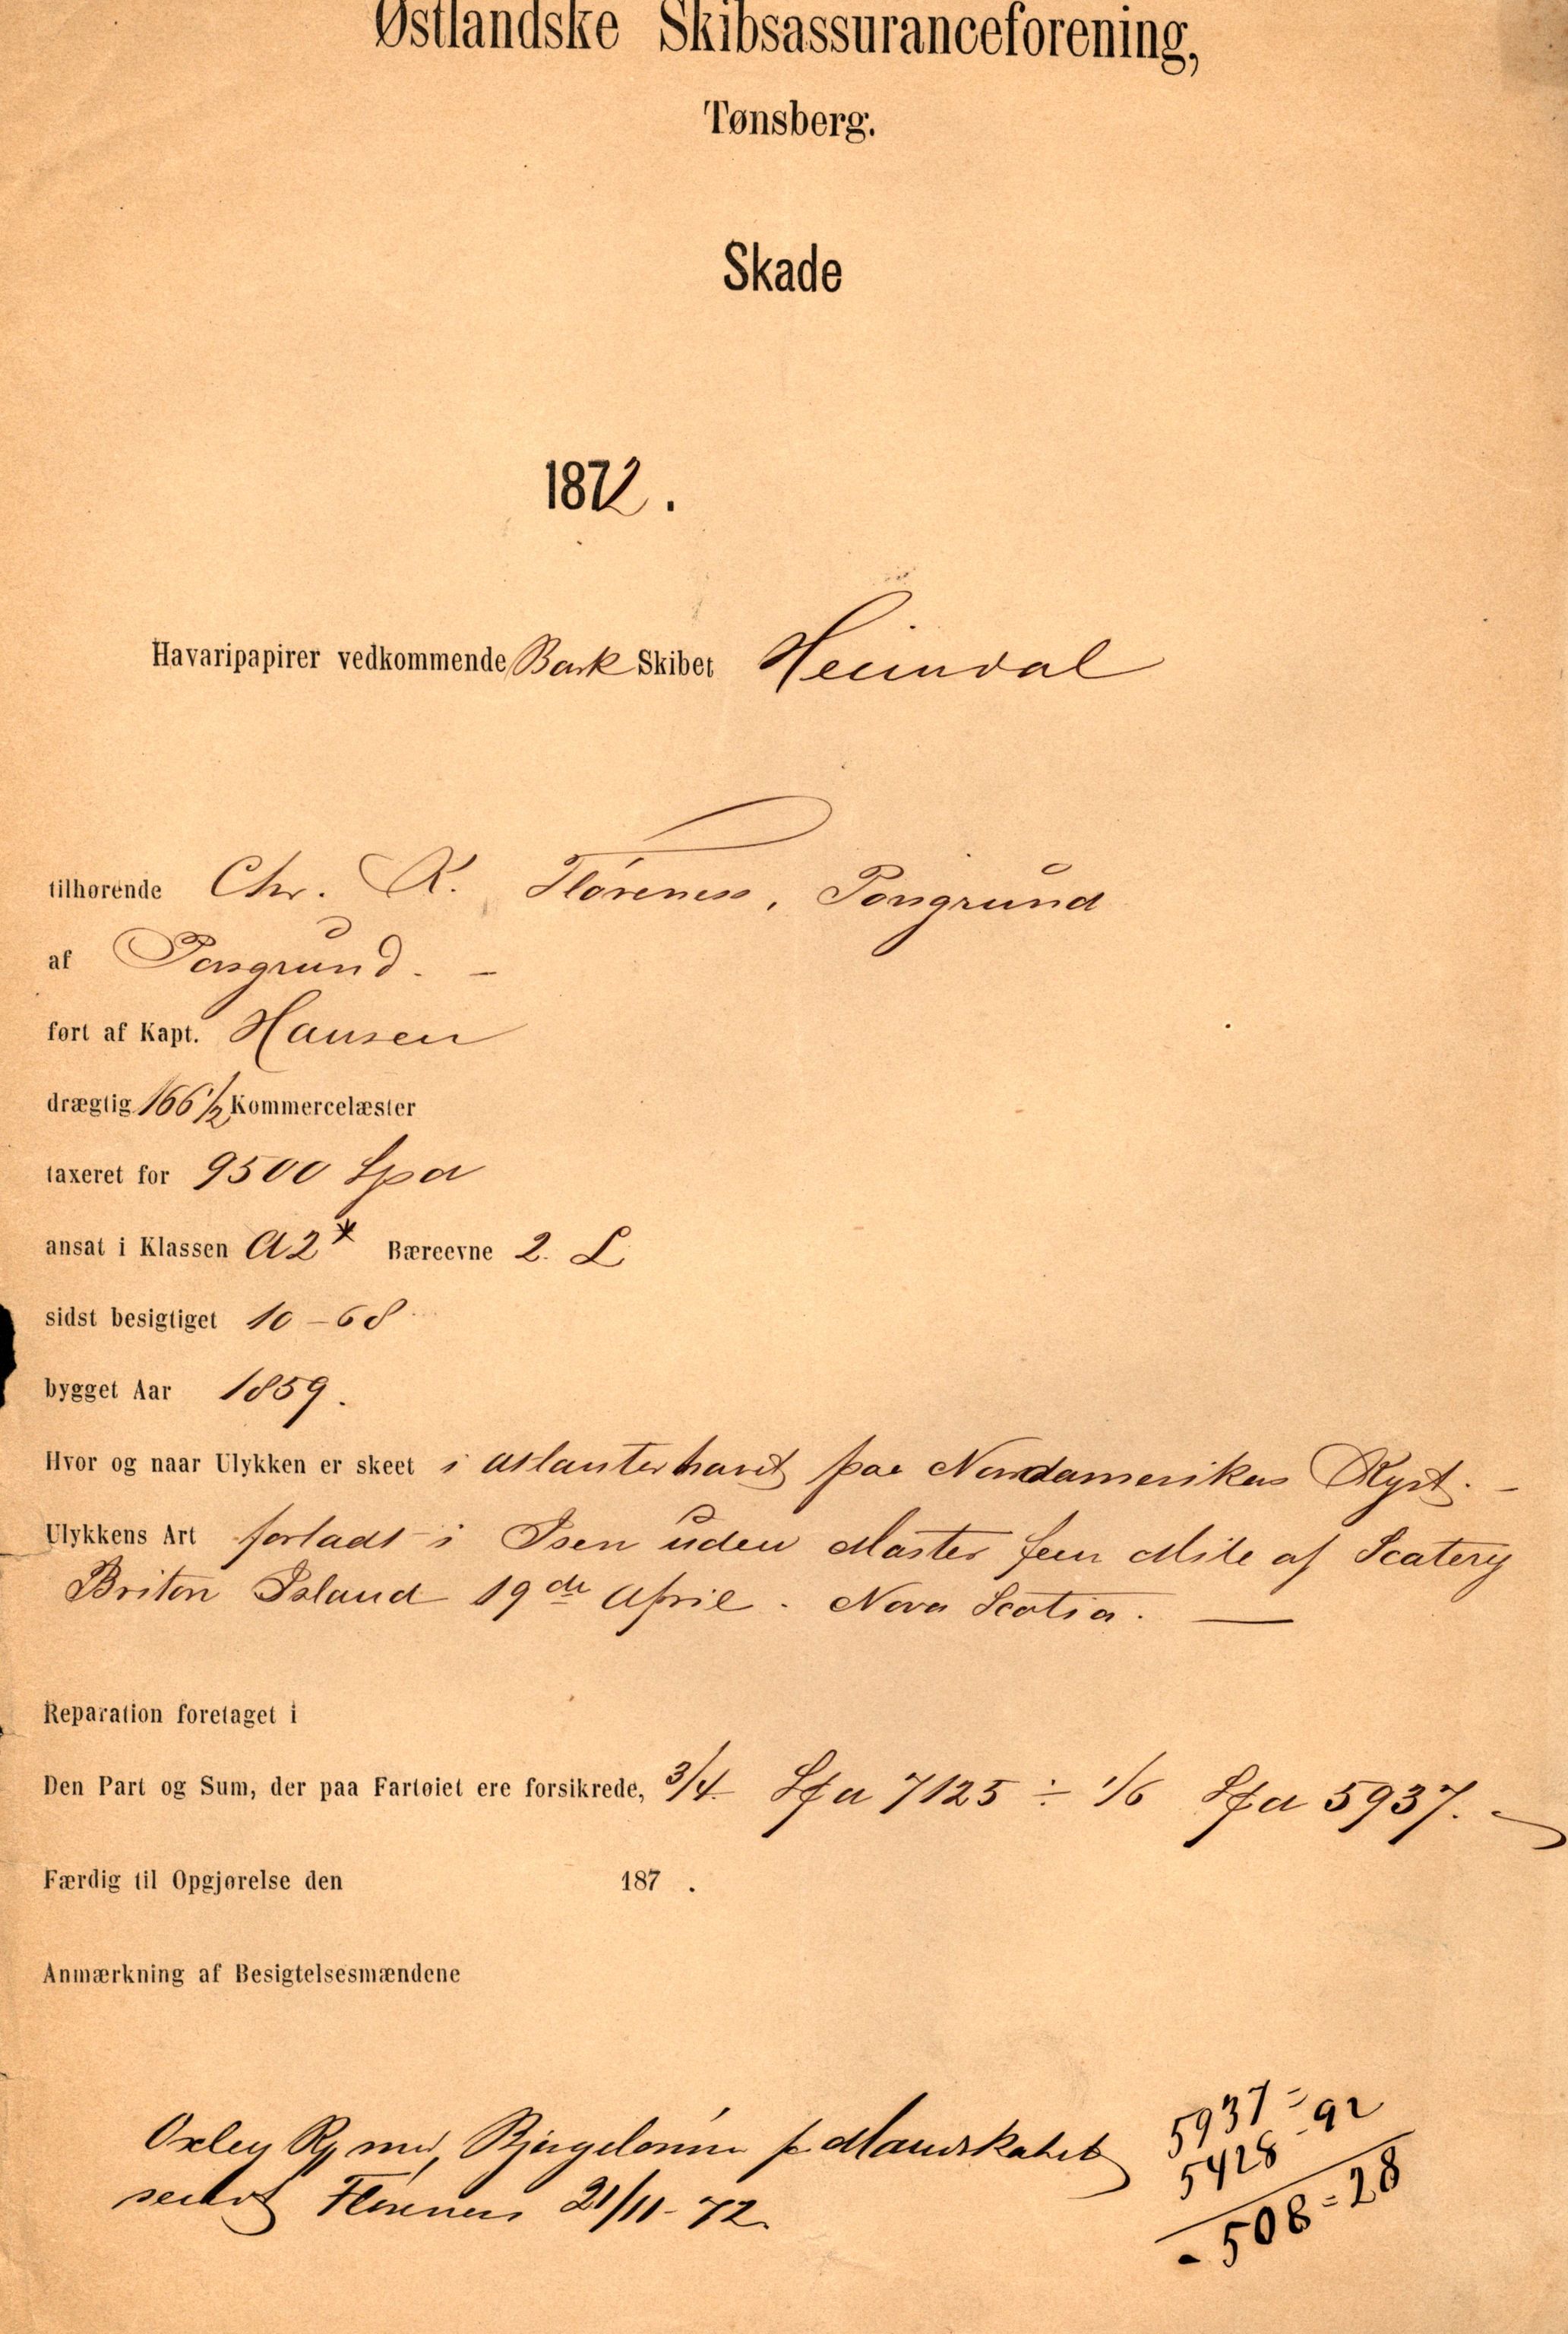 Østlandske Skibsassuranceforening,
Tønsberg.
Skade
1872.
Havaripapirer vedkommende Bark Skibet Heimdal
tilhørende Chr. K. Florenes, Porsgrund
af Porsgrund. –
ført af Kapt. Hansen
drægtig 166 1/2 Kommercelæster
taxeret for 9500 Spd
ansat i Klassen A2* Bæreevne 2. L
sidst besigtiget 10 – 68
bygget Aar 1859.
Hvor og naar Ulykken er skeet i Atlanterhavet paa Nordamerikas Kyst. –
Ulykkens Art forladt i Isen uden Master fem Mile af Scatery
Briton Island 19de April. Nova Scotia. —
Reparation foretaget i
Den Part og Sum, der paa Fartøiet ere forsikrede, 3/4 Spd 7125 ÷ 1/6 Spd 5937. –
Færdig til Opgjørelse den 187 .
Anmærkning af Besigtelsesmændene
Oxley Bjergelønn Mandskabet
sendt 21/11-72.
5937 = 92
5428
- 508 = 28